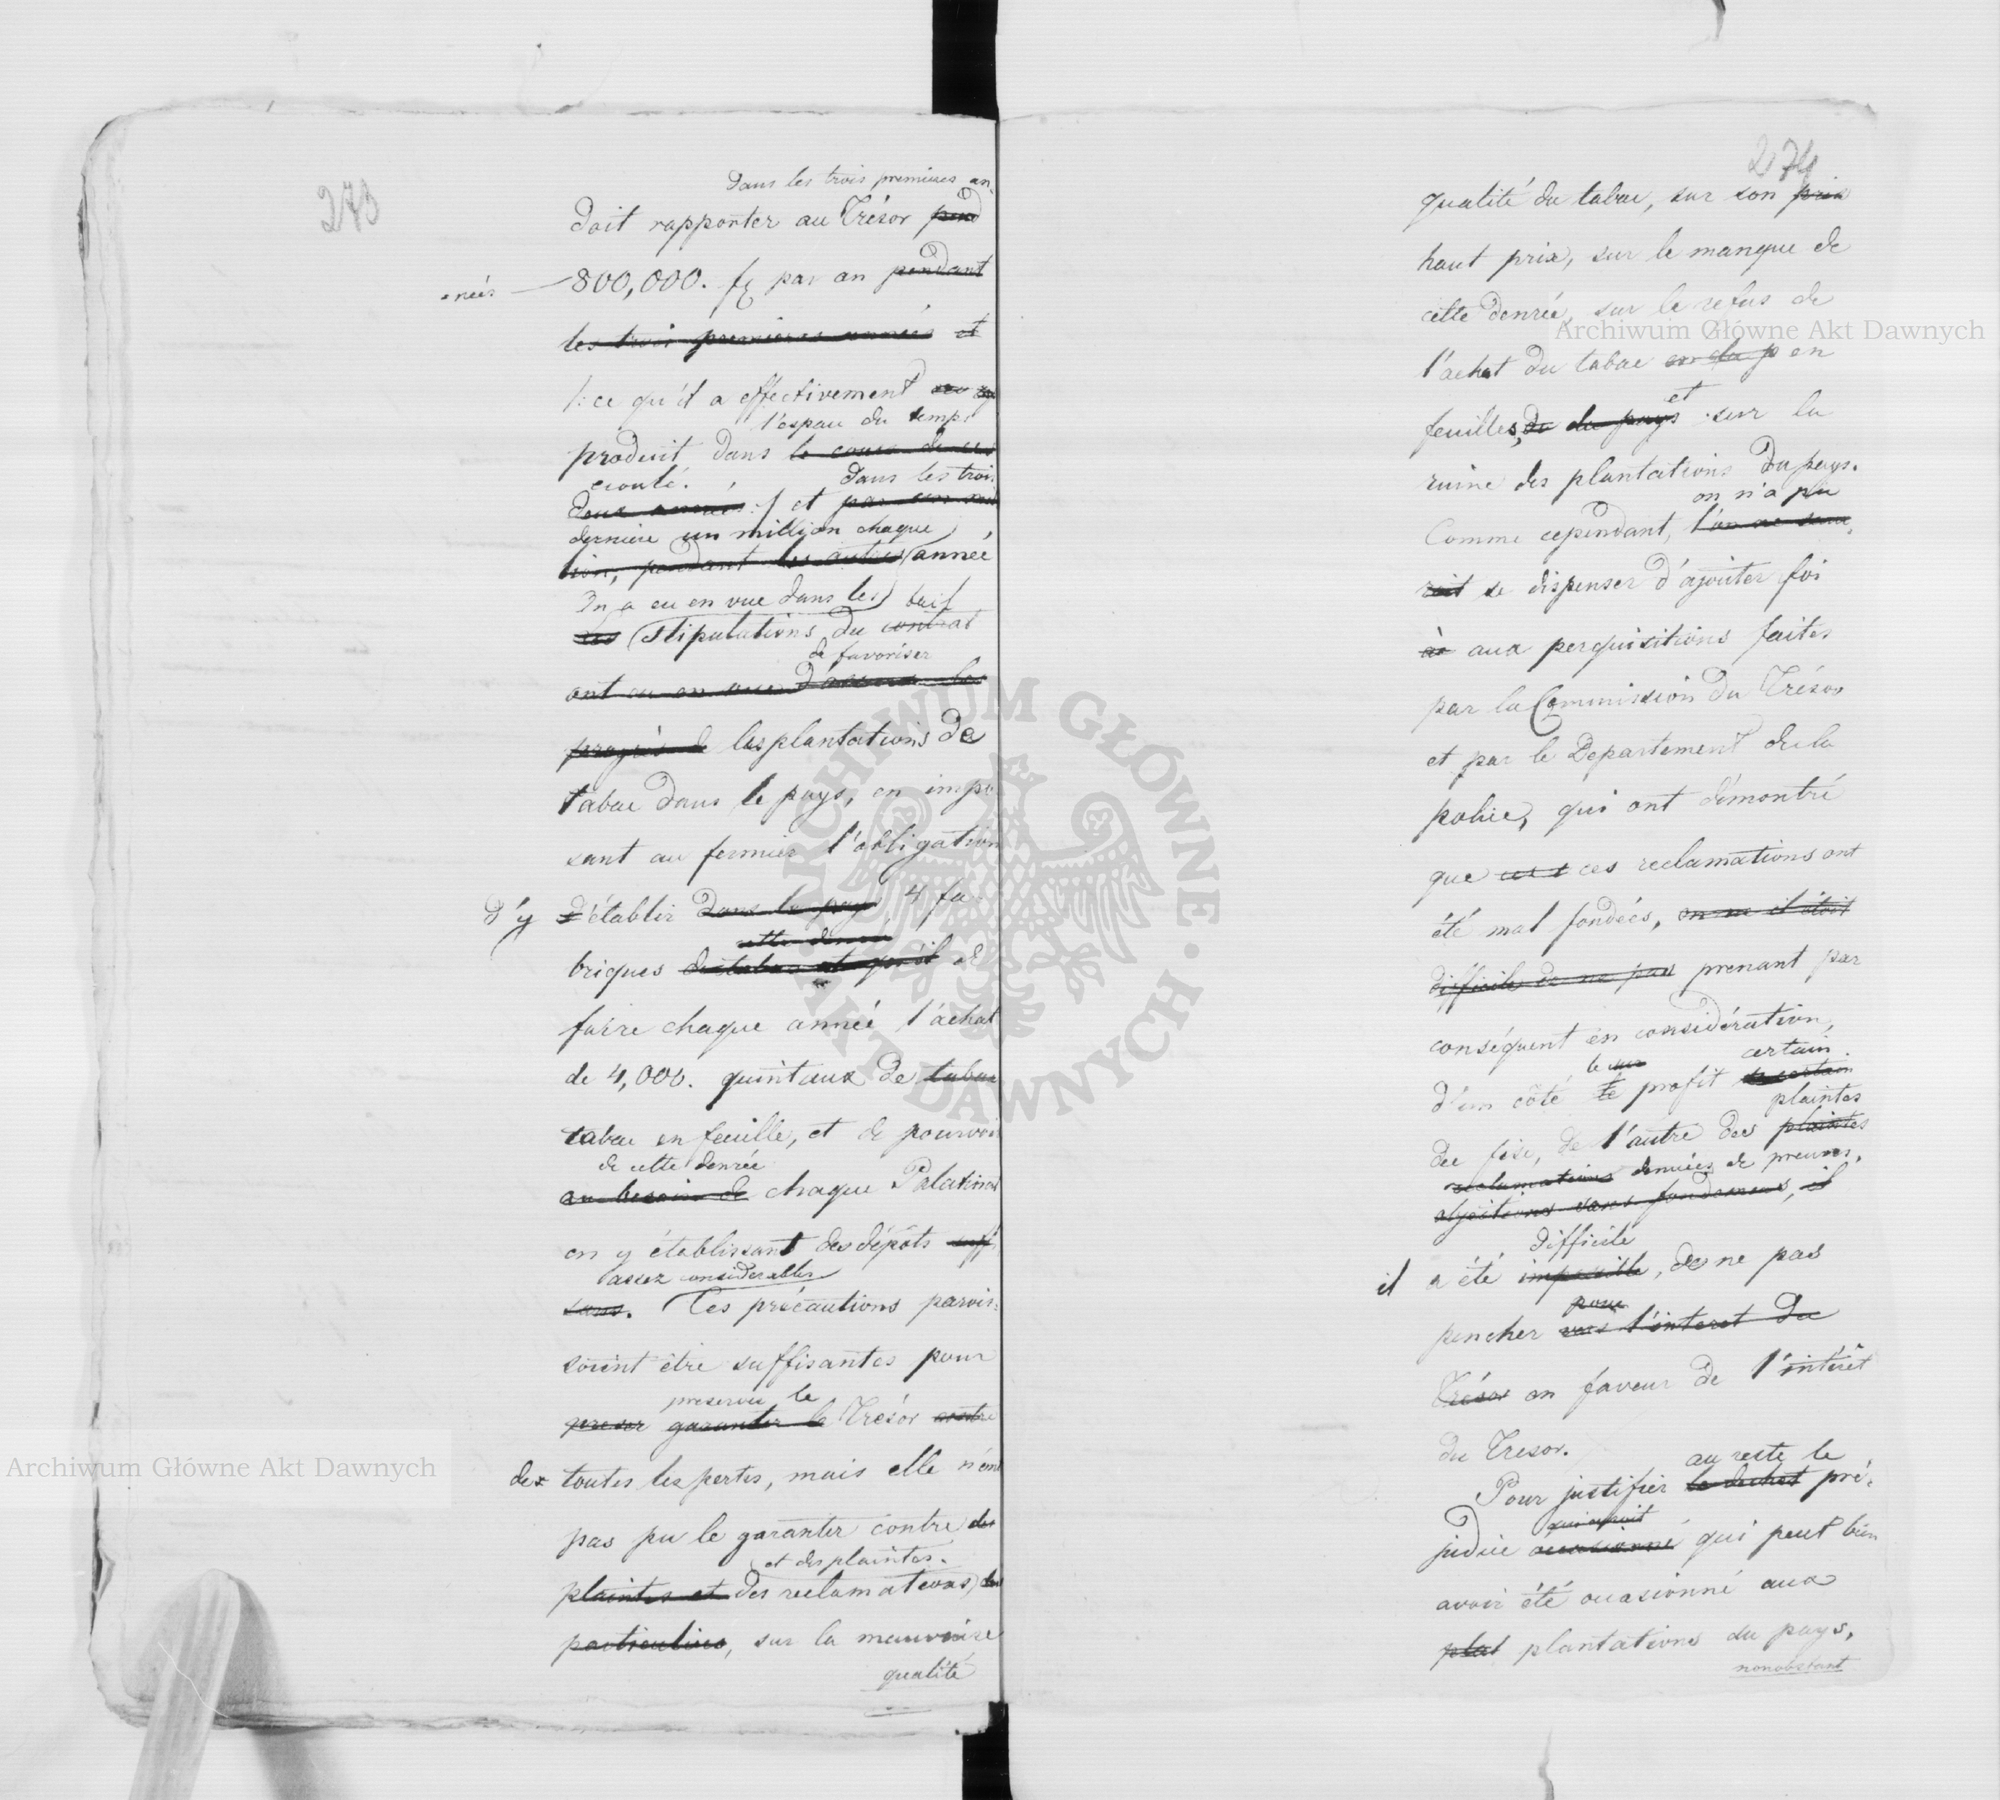 273
Dans les trois premieres an-
doit rapporter au Trésor pend
nées 800,000. f par an pendant
les trois premieres années et
/: ce qu'il a effectivement
l'espace du temps
produit dans le cours de ces
ecoulé. dans les trois
deux années :/ et par un mil
derniere un million chaque
lion, pendant les autres année
On a eu en vue dans les bail
Les Stipulations du contrat
de favoriser
ont eu en vue d'assurer les
progrès de les plantations de
tabac dans le pays, en impo
sant au fermier l'obligation
d'y d'établir dans le pays, 4 fa-
cette denrée
briques de tabac et qu'il et
faire chaque année l'achat
de 4,000. quintaux de tabac
tabac en feuille, et de pourvoir
de cette denrée
au besoin de chaque Palatinat
en y établissant des dépôts suff
assez considerables
sans. Ces précautions parois-
soient être suffisantes pour
preserver le
preser garantir le Trésor contre
de toutes les pertes, mais elle n'ont
pas pu le garantir contre des
et des plaintes.
plaintes et des reclamations des
particuliers, sur la mauvaise
qualité
274
qualité du tabac, sur son prix
haut prix, sur le manque de
cette denrée, sur le refus de
l'achat du tabac en
et
feuilles, de du pays sur la
ruine des plantations du pays.
on n'a pu
Comme cependant, l'on ne sau-
roit se dispenser d'ajouter foi
à aux perquisitions faites
par la Commission du Trésor
et par le Departement de la
police, qui ont démontré
que ces reclamations ont
été mal fondées, on ne il étoit
difficile de ne pas prenant par
conséquent en considération,
le certain.
d'un côté le profit certain
plaintes
du fisc, de l'autre des plaintes
reclamations denuées de preuves.
objections sans fondemens, il
difficile
il a été impossible, de ne pas
pour
pencher vers l'interet du
Trésor en faveur de l'intérêt
du Tresor.
au reste le
Pour justifier le déchet pré-
qui auroit
judice occasionné qui peut bien
avoir été occasionné aux
plat plantations du pays,
nonobstant
Archiwum Główne Akt Dawnych
Archiwum Główne Akt Dawnych
ARCHIWUM GŁÓWNE · AKT DAWNYCH ·